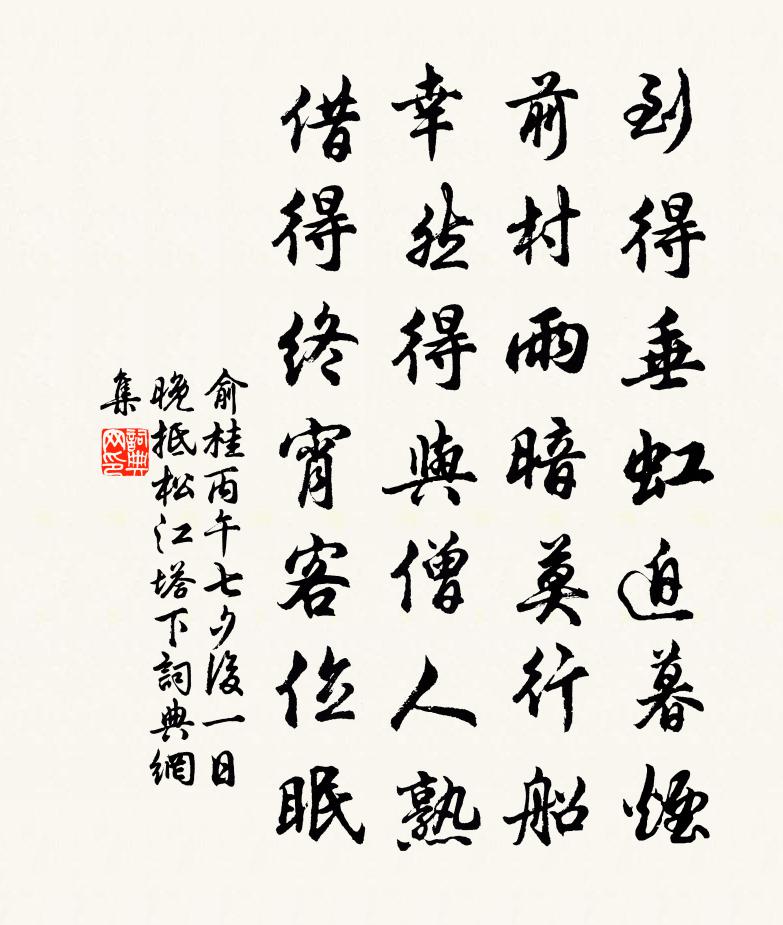 到得垂虹迫暮煙
前村雨暗莫行船
幸然得與僧人熟
借得終宵客位眠
俞桂丙午七夕後一日
晚抵松江塔下詞典網
集
詞典网印